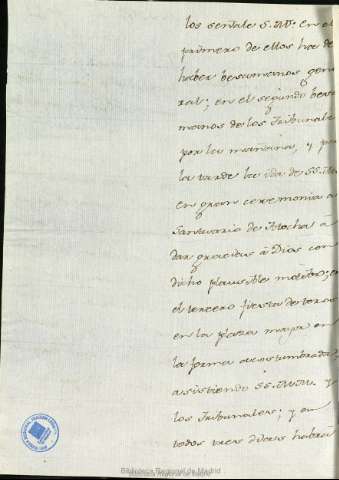 los sentale S.M. en el
primero de ellos ha de
haber besamanos gene
ral; en el segundo besa
manos de los Tribunales
por la mañana, y por
la tarde la ida de SS.MM.
en gran ceremonia al
Santuario de Atocha á
dar gracias á Dios con
dicho plausible motivo; en
el tercero fiesta de toros
en la plaza mayor en
la forma acostumbrada,
asistiendo SS.MM. y
los Tribunales; y en
todos tres dias habrá
Biblioteca Regional de Madrid